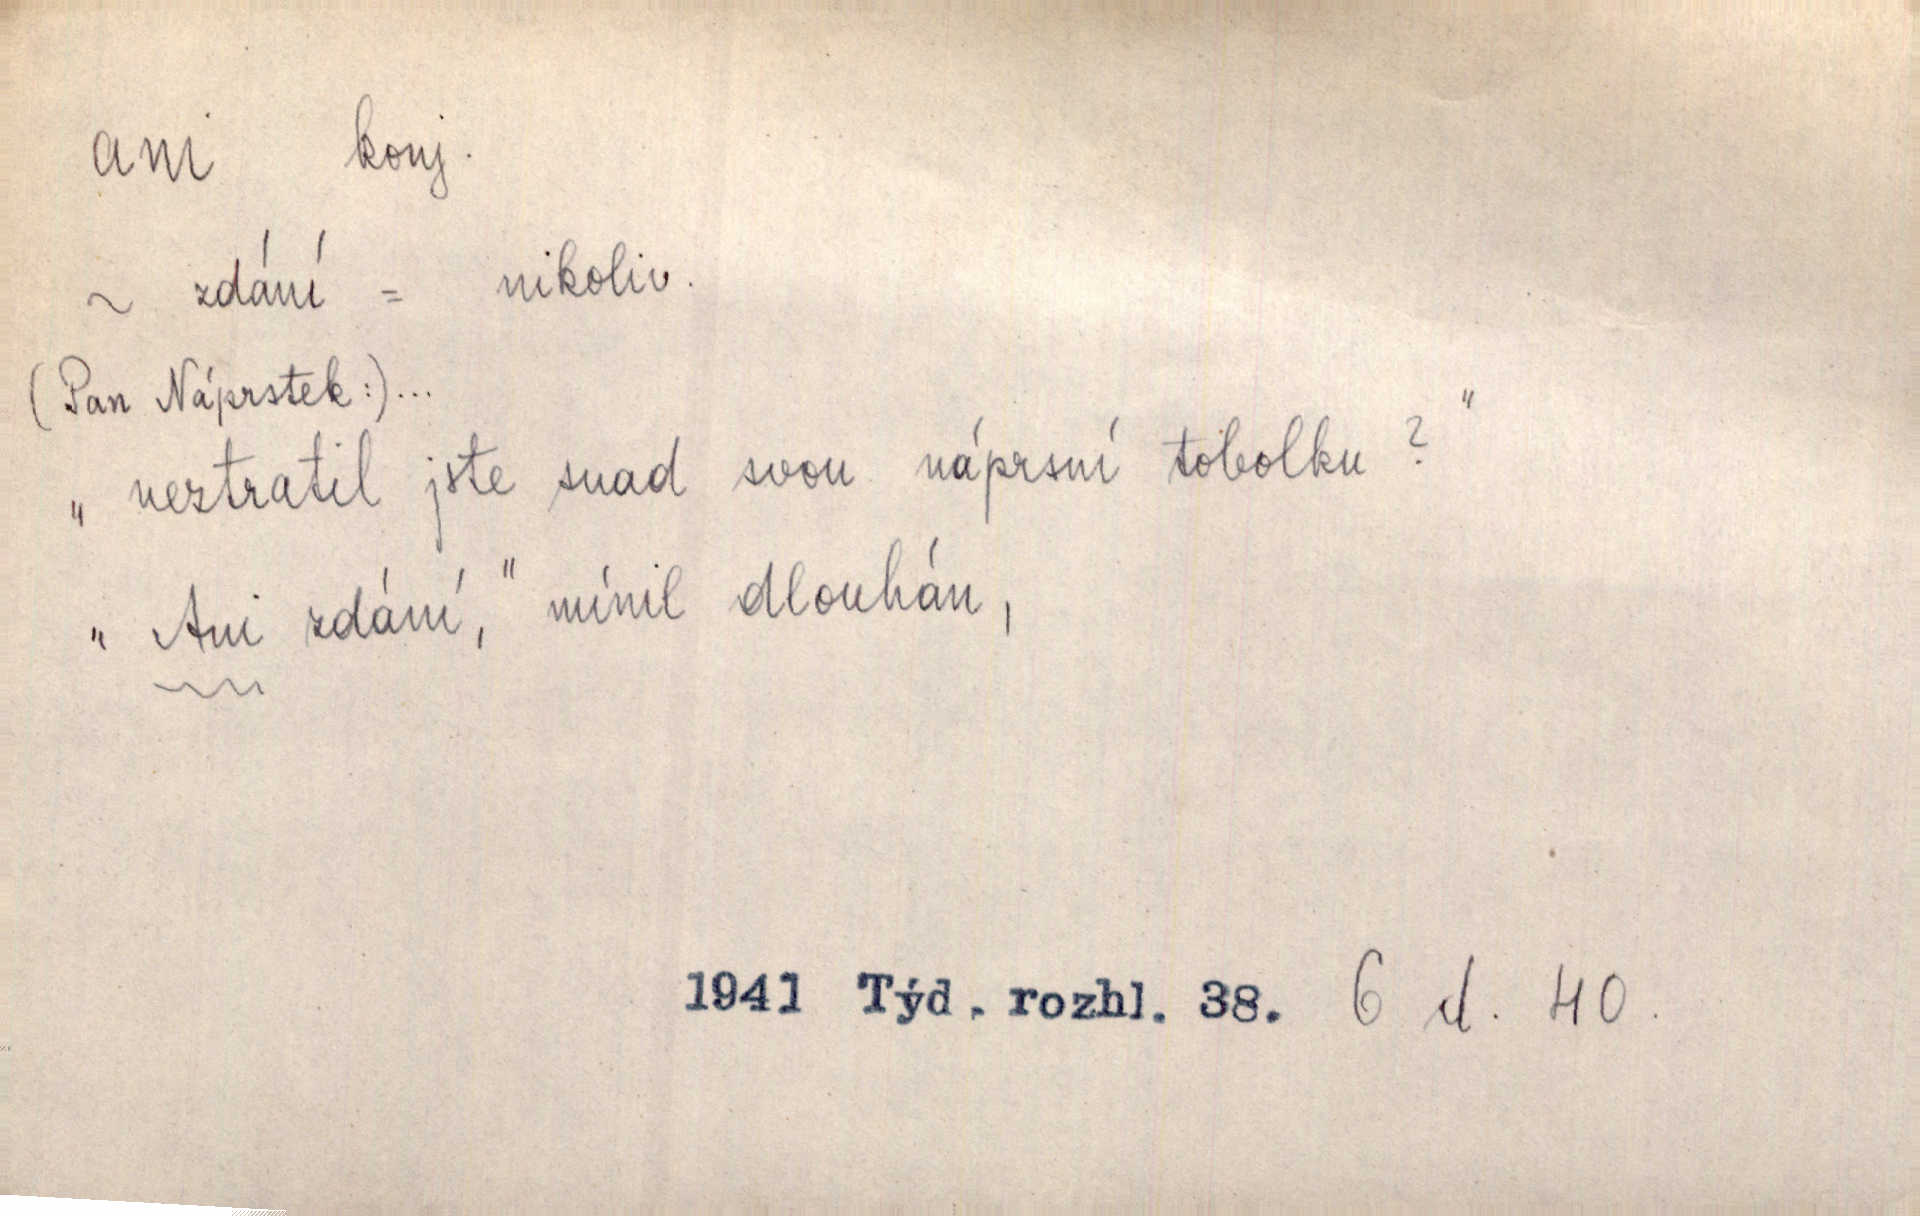 ani konj.
~ zdání = nikoliv.
(Pan Náprstek:)...
„neztratil jste snad svou náprsní tobolku?"
„Ani zdání," mínil dlouhán,
1941 Týd. rozhl. 38. 6 d. 40.